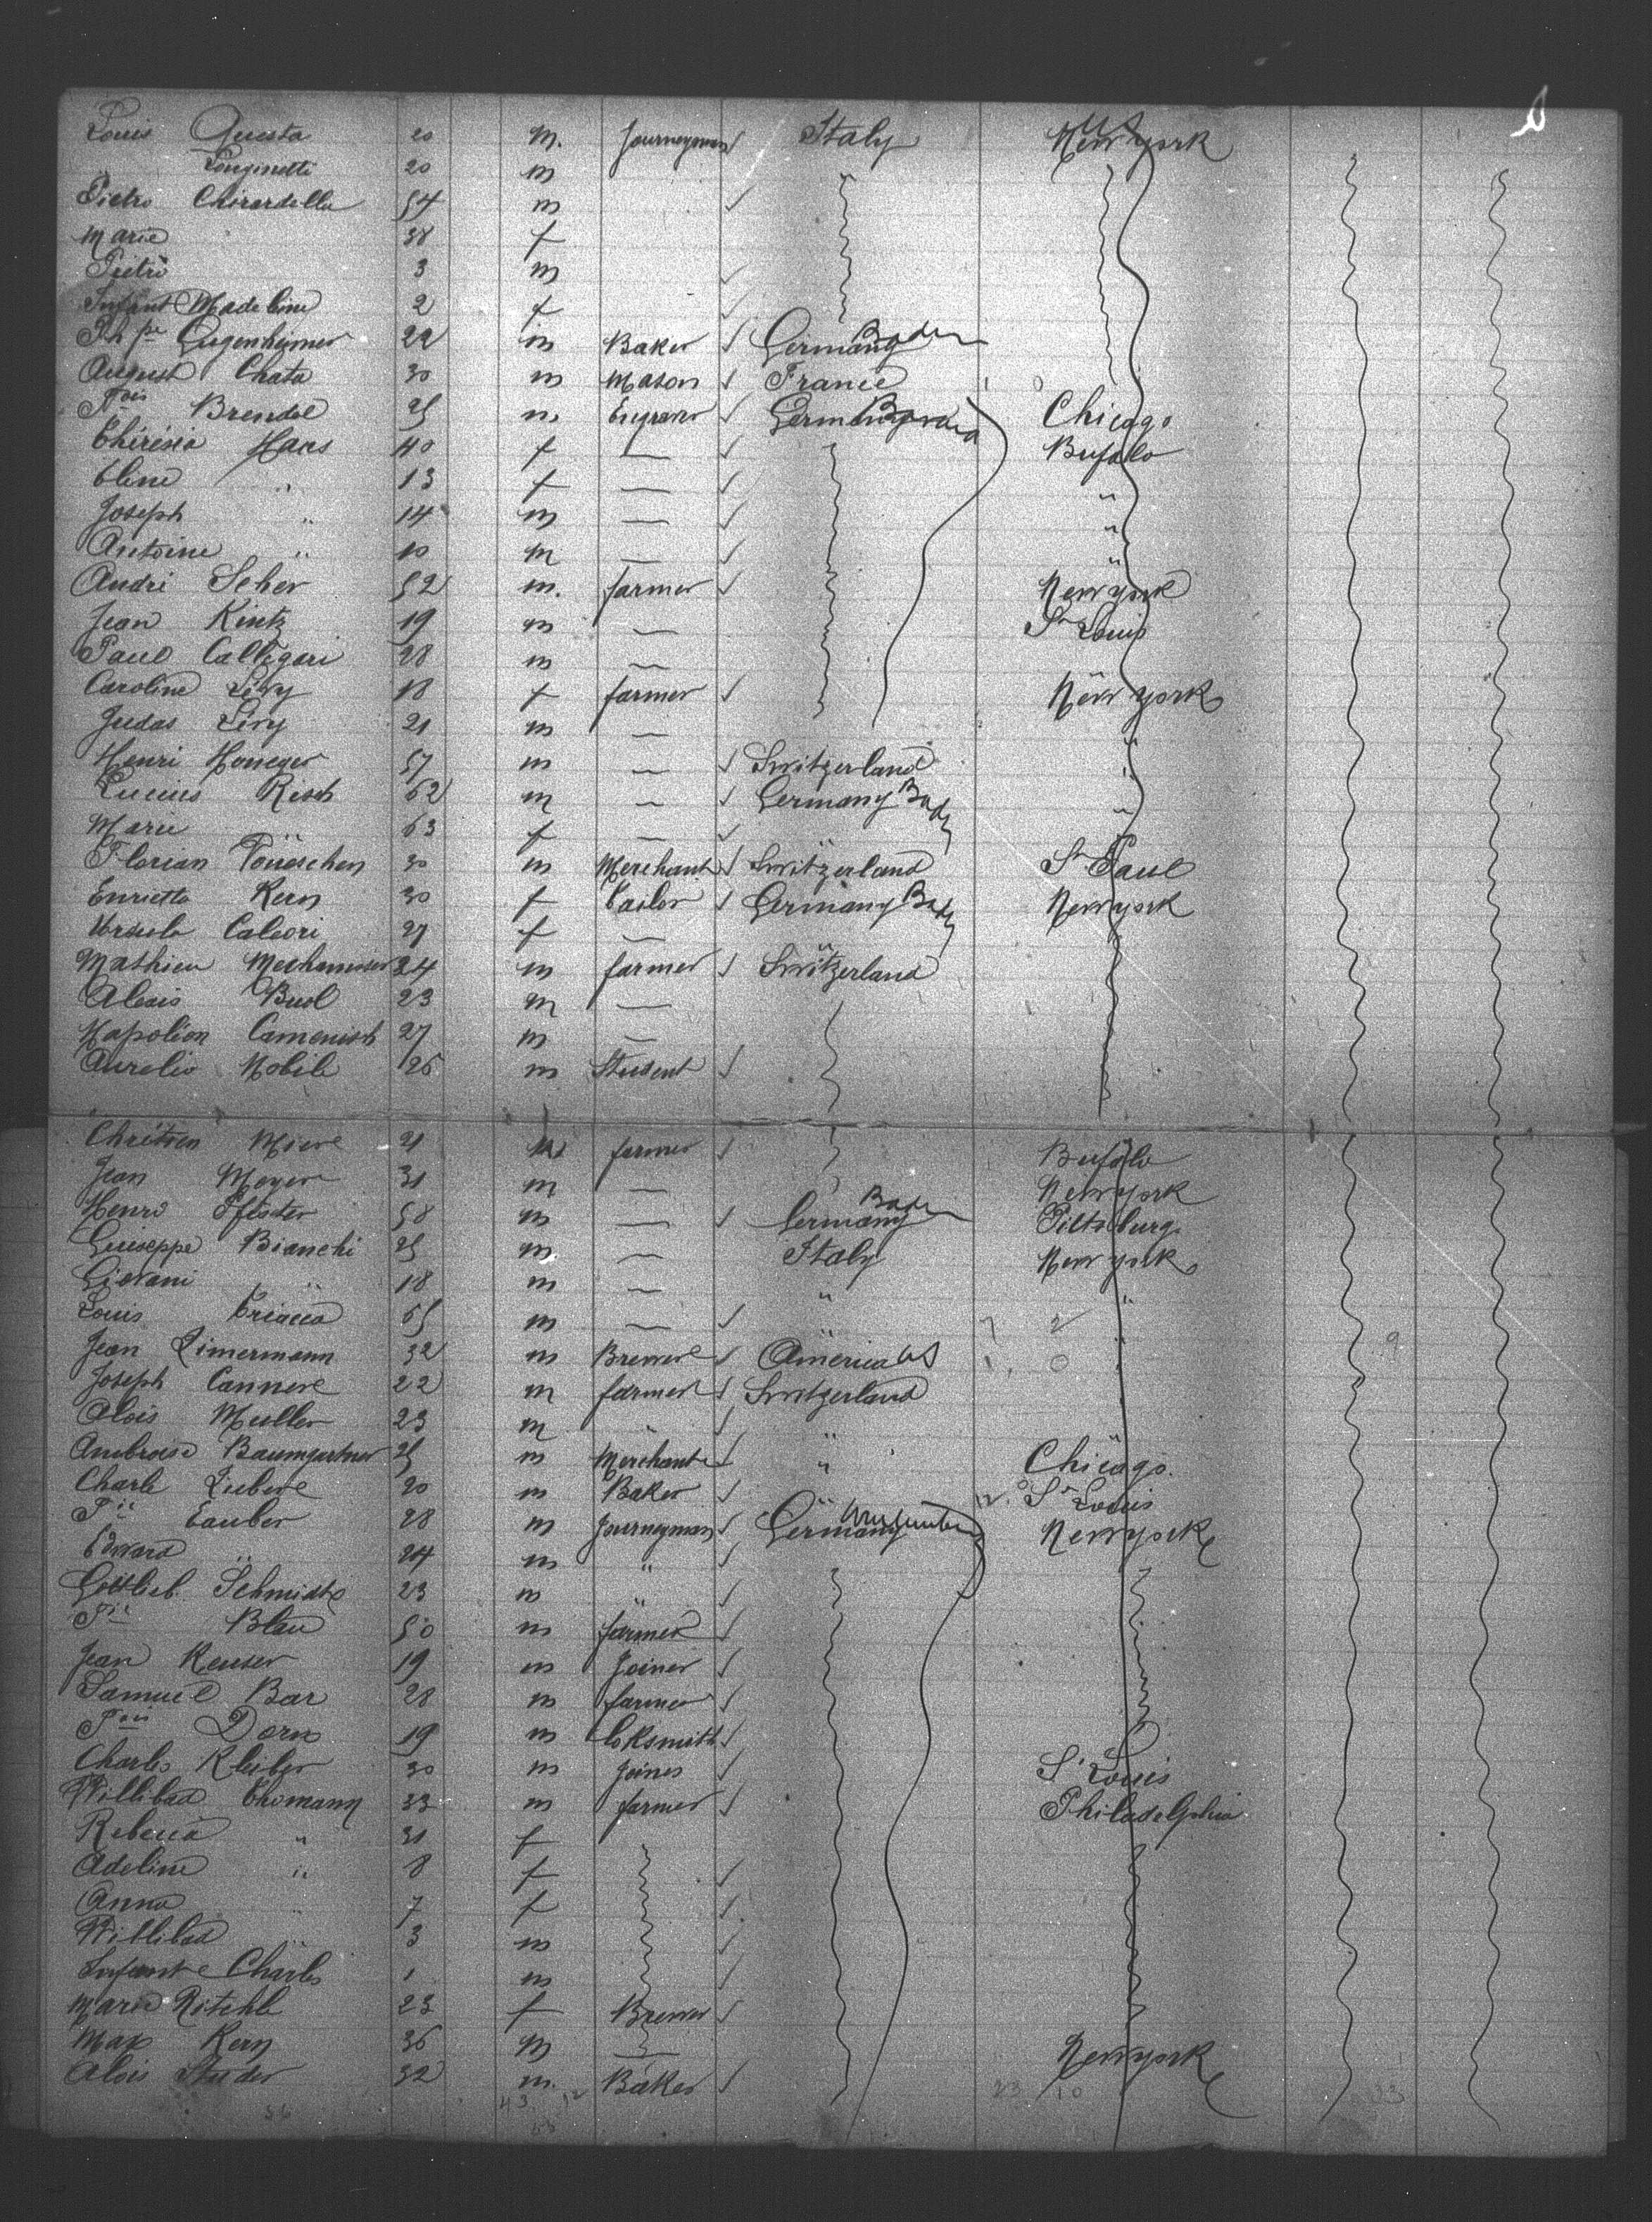 Louis Questa 20 m. Journeyman Italy US New york
Longinetti 20 m
Pietro Chirardella 54 m
Marie 38 f
Pietro 3 m
Infant Madeline 2 f
Ph pe Gugenheimer 22 m Baker Germany Baden
August Chata 30 m Mason France
Fois Brendel 25 m. Engraver Germany Bavaria Chicago
Thérésia Haas 40 f — Bufalo
Elene " 13 f — "
Joseph " 14 m — "
Antoine " 10 m — "
André Scher 52 m. farmer New york
Jean Kintz 19 m — St Louis
Paul Callegari 28 m —
Caroline Levy 18 f farmer New york
Judas Levy 21 m — "
Henri Honeger 57 m — Switzerland "
Lucius Risch 62 m — Germany Baden "
Marie 63 f —
Florian 30 m Merchant Switzerland St Paul
Enrietta Kern 30 f Tailor Germany Baden New york
Ursula Caleori 27 f —
Mathieu 24 m farmer Switzerland
Alexis Buol 23 m —
Napoléon Camenisch 27 m —
Aurelio Nobile 26 m Student
Chrétien 21 m farmer Bufalo
Jean Meyer 31 m — New york
Henri Pfister 58 m — Germany Baden Pittsburg
Guiseppe Bianchi 25 m. — Italy New york
Giovani " 18 m — " "
Louis Criacca 65 m —
Jean Zimermann 32 m Brewer America US
Joseph Cannere 22 m farmer Switzerland
Alois Muller 23 m " "
Ambroise Baumgartner 25 m Merchant " Chicago.
Charle 20 m Baker St Louis
Tauber 28 m Journeyman Germany Wurtemberg New york
Edward " 24 m "
Gottlieb Schmidt 23 m "
Blau 50 m farmer
Jean Keuser 19 m Joiner
Samuel Bar 28 m farmer
Fois Dorn 19 m loksmith
Charles Kleiber 30 m Joiner St Louis
Willibad Thomann 33 m farmer Philadelphia
Rebecca " 31 f
Adeline " 8 f
Anna " 7 f
Willibad " 3 m
Infant Charles 1 m
Marie Ritchle 23 f Brewer
Max Kern 36 m — New york
Alois Studer 32 m. Baker
56 43 12 23 10 33
53